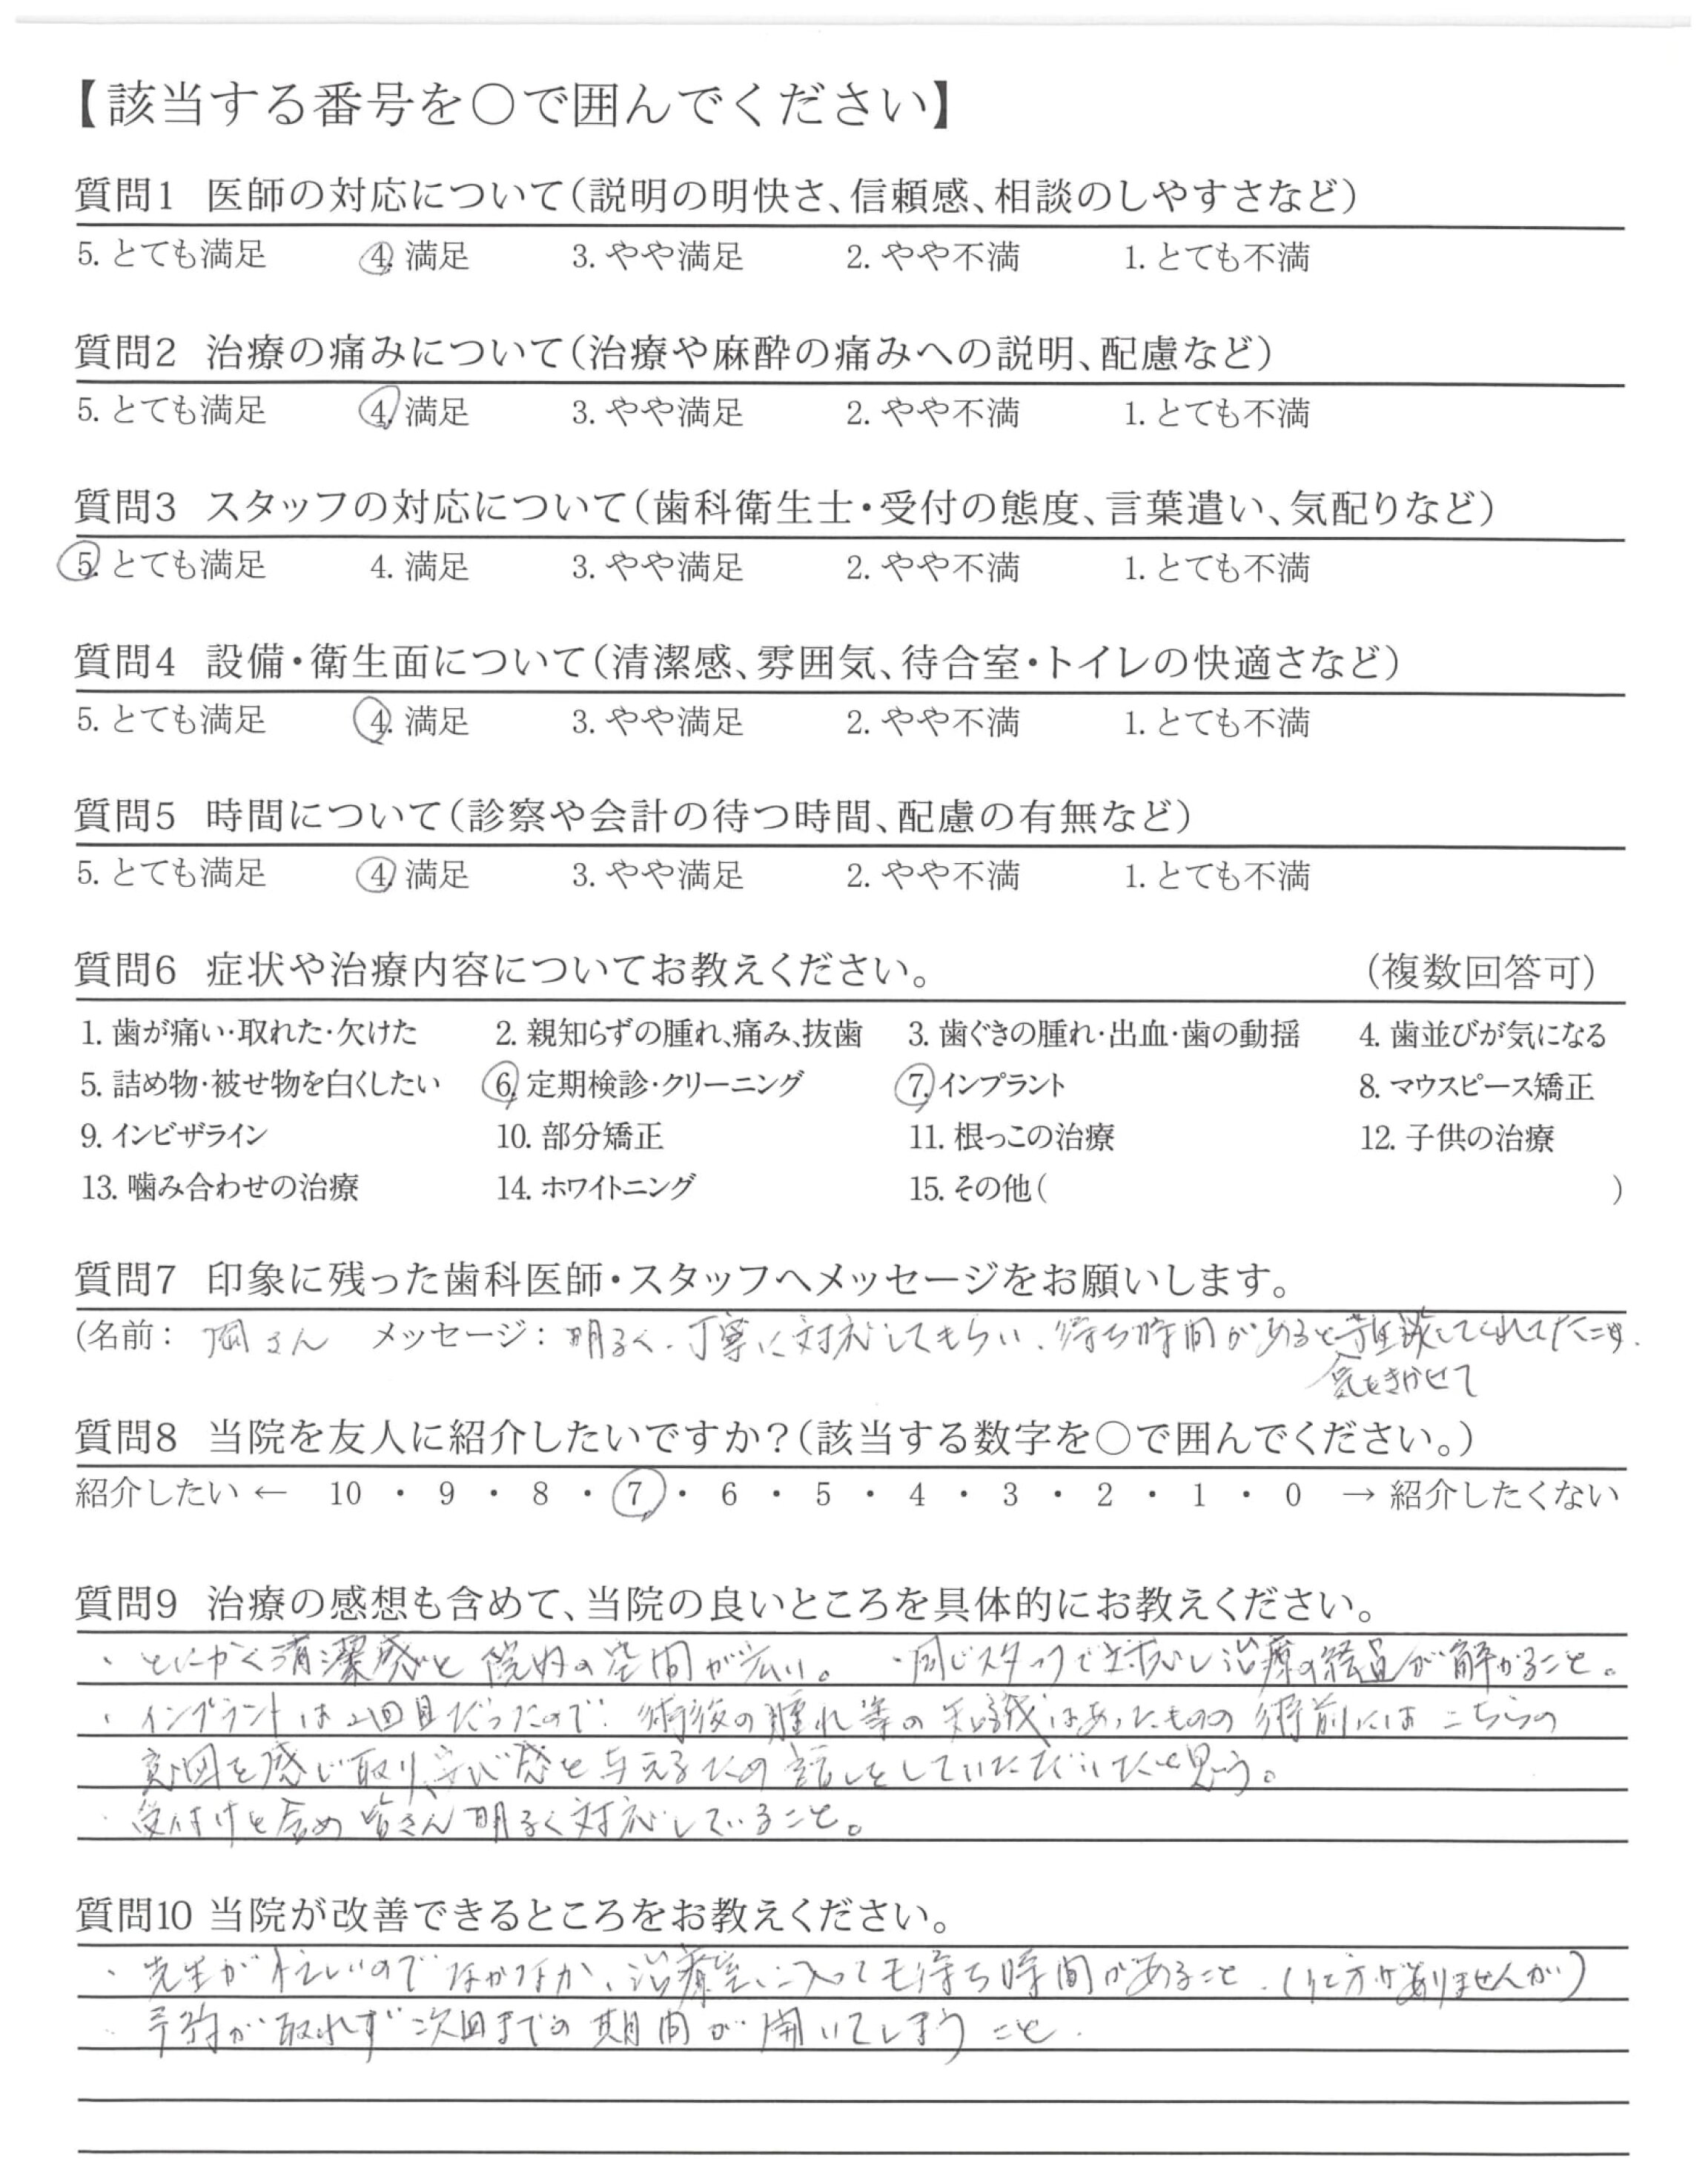 【該当する番号を○で囲んでください】
質問1 医師の対応について(説明の明快さ、信頼感、相談のしやすさなど)
5. とても満足 4. 満足 3. やや満足 2. やや不満 1. とても不満
質問2 治療の痛みについて(治療や麻酔の痛みへの説明、配慮など)
5. とても満足 4. 満足 3. やや満足 2. やや不満 1. とても不満
質問3 スタッフの対応について(歯科衛生士・受付の態度、言葉遣い、気配りなど)
5. とても満足 4. 満足 3. やや満足 2. やや不満 1. とても不満
質問4 設備・衛生面について(清潔感、雰囲気、待合室・トイレの快適さなど)
5. とても満足 4. 満足 3. やや満足 2. やや不満 1. とても不満
質問5 時間について(診察や会計の待つ時間、配慮の有無など)
5. とても満足 4. 満足 3. やや満足 2. やや不満 1. とても不満
質問6 症状や治療内容についてお教えください。 (複数回答可)
1. 歯が痛い・取れた・欠けた 2. 親知らずの腫れ、痛み、抜歯 3. 歯ぐきの腫れ・出血・歯の動揺 4. 歯並びが気になる
5. 詰め物・被せ物を白くしたい 6. 定期検診・クリーニング 7. インプラント 8. マウスピース矯正
9. インビザライン 10. 部分矯正 11. 根っこの治療 12. 子供の治療
13. 噛み合わせの治療 14. ホワイトニング 15. その他( )
質問7 印象に残った歯科医師・スタッフへメッセージをお願いします。
(名前: さん メッセージ: 明るく、丁寧に対応してもらい、待ち時間があると してくれてたこと.
気をきかせて
質問8 当院を友人に紹介したいですか?(該当する数字を○で囲んでください。)
紹介したい ← 10 ・ 9 ・ 8 ・ 7 ・ 6 ・ 5 ・ 4 ・ 3 ・ 2 ・ 1 ・ 0 → 紹介したくない
質問9 治療の感想も含めて、当院の良いところを具体的にお教えください。
・とにかく清潔感と院内の空間が広い。 ・同じスタッフで対応し治療の経過が解かること。
・インプラントは2回目だったので、術後の腫れ等の知識はあったものの術前にはこちらの
意図を感じ取り、安心感を与えるための話しをしていただいたと思う。
・受付けを含め皆さん明るく対応していること。
質問10 当院が改善できるところをお教えください。
・先生が忙しいのでなかなか、治療室に入っても待ち時間があること.(仕方がありませんが)
・予約が取れず次回までの期間が開いてしまうこと.